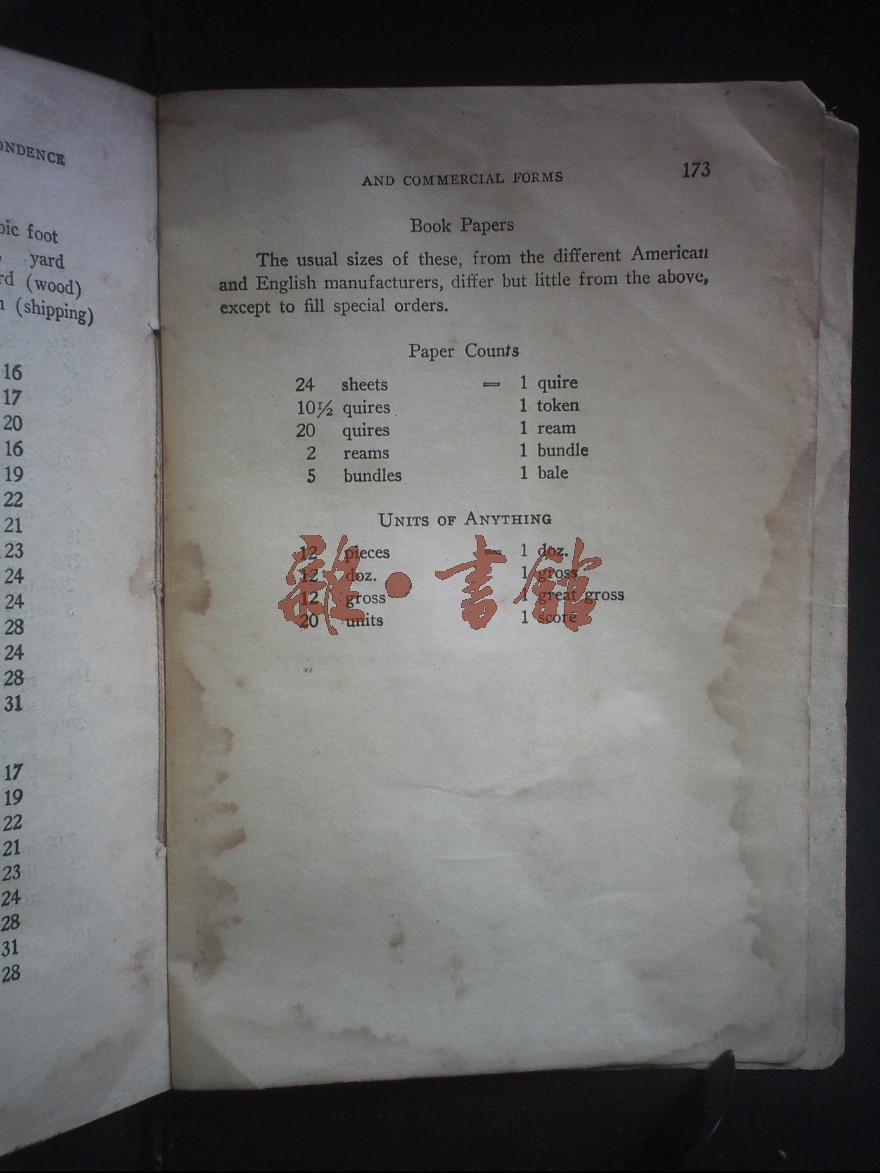 ONDENCE
foot
yard
(wood)
(shipping)
16
17
20
16
19
22
21
23
24
24
28
24
28
31
17
19
22
21
23
24
28
31
28
AND COMMERCIAL FORMS 173
Book Papers
The usual sizes of these, from the different American
and English manufacturers, differ but little from the above,
except to fill special orders.
Paper Counts
24 sheets = 1 quire
10½ quires 1 token
20 quires 1 ream
2 reams 1 bundle
5 bundles 1 bale
UNITS OF ANYTHING
12 pieces = 1 doz.
12 doz. 1 gross
12 gross 1 great gross
20 units 1 score
雜·書館